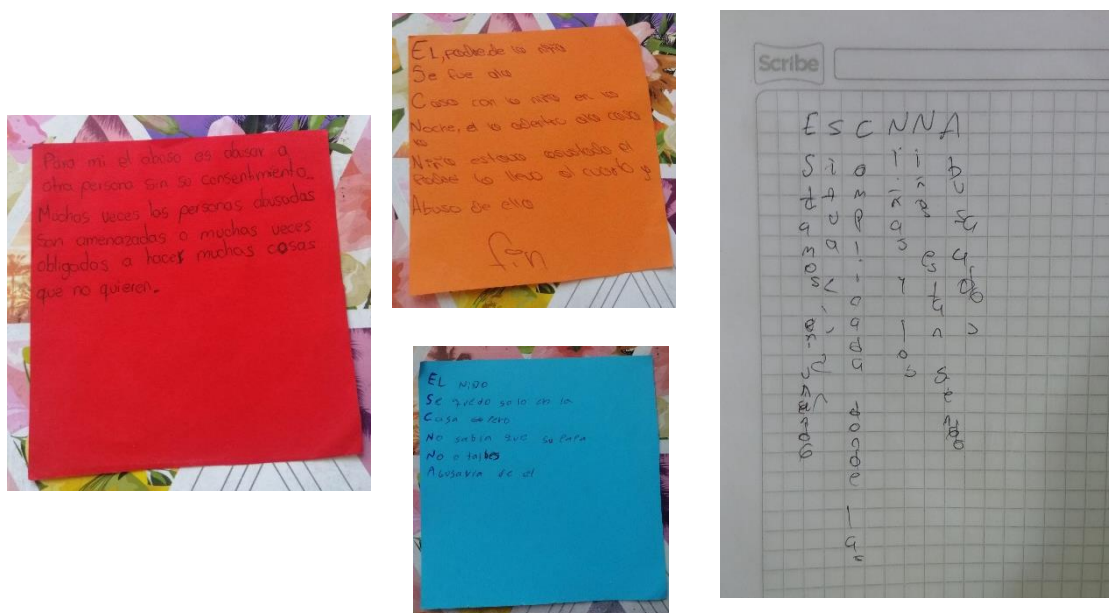 Para mi el abuso es abusar a
otra persona sin su consentimiento.
Muchas veces las personas abusadas
son amenazadas o muchas veces
obligadas a hacer muchas cosas
que no quieren.
EL, padre de la niña
Se fue ala
Casa con la niña en la
Noche, el la
la
Niña estava asustada el
Padre la llevo al cuarto y
Abuso de ella
fin
EL niño
Se quedo solo en la
Casa
No sabia que su papa
No
Abusaria de el
Scribe
Estamos en
Situacion
Complicada donde las
Niñas y los
Niños estan
Abusados